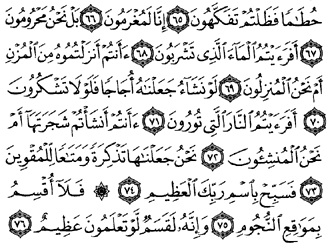 حُطَـٰمًا فَظَلْتُمْ تَفَكَّهُونَ ﴿٦٥﴾ إِنَّا لَمُغْرَمُونَ ﴿٦٦﴾ بَلْ نَحْنُ مَحْرُومُونَ
﴿٦٧﴾ أَفَرَءَيْتُمُ ٱلْمَآءَ ٱلَّذِى تَشْرَبُونَ ﴿٦٨﴾ ءَأَنتُمْ أَنزَلْتُمُوهُ مِنَ ٱلْمُزْنِ
أَمْ نَحْنُ ٱلْمُنزِلُونَ ﴿٦٩﴾ لَوْ نَشَآءُ جَعَلْنَـٰهُ أُجَاجًا فَلَوْلَا تَشْكُرُونَ
﴿٧٠﴾ أَفَرَءَيْتُمُ ٱلنَّارَ ٱلَّتِى تُورُونَ ﴿٧١﴾ ءَأَنتُمْ أَنشَأْتُمْ شَجَرَتَهَآ أَمْ
نَحْنُ ٱلْمُنشِـُٔونَ ﴿٧٢﴾ نَحْنُ جَعَلْنَـٰهَا تَذْكِرَةً وَمَتَـٰعًا لِّلْمُقْوِينَ
﴿٧٣﴾ فَسَبِّحْ بِٱسْمِ رَبِّكَ ٱلْعَظِيمِ ﴿٧٤﴾ ۞ فَلَآ أُقْسِمُ
بِمَوَٰقِعِ ٱلنُّجُومِ ﴿٧٥﴾ وَإِنَّهُۥ لَقَسَمٌ لَّوْ تَعْلَمُونَ عَظِيمٌ ﴿٧٦﴾